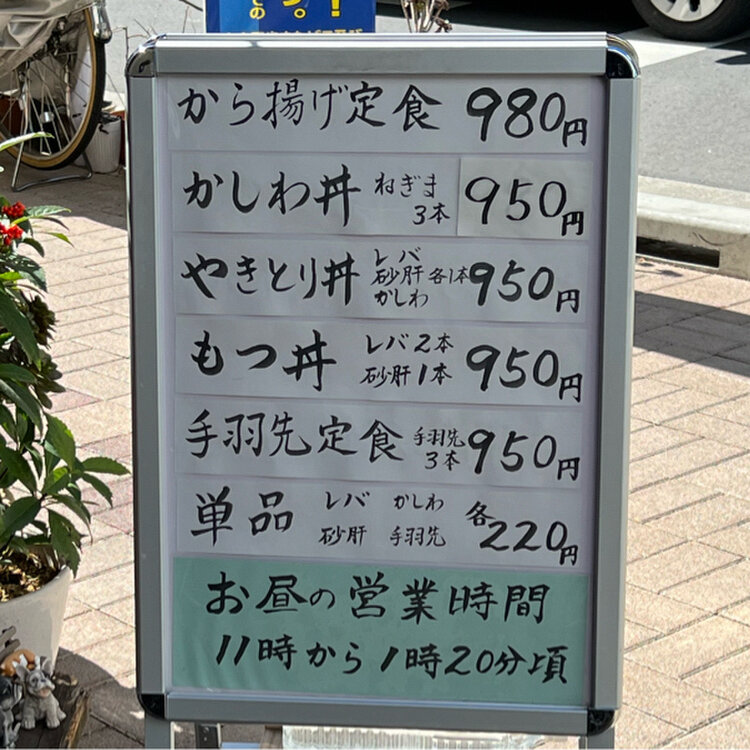 から揚げ定食 980円
かしわ丼 ねぎま 3本 950円
やきとり丼 レバ 砂肝 かしわ 各1本 950円
もつ丼 レバ2本 砂肝1本 950円
手羽先定食 手羽先 3本 950円
単品 レバ かしわ 砂肝 手羽先 各220円
お昼の営業時間
11時から1時20分頃